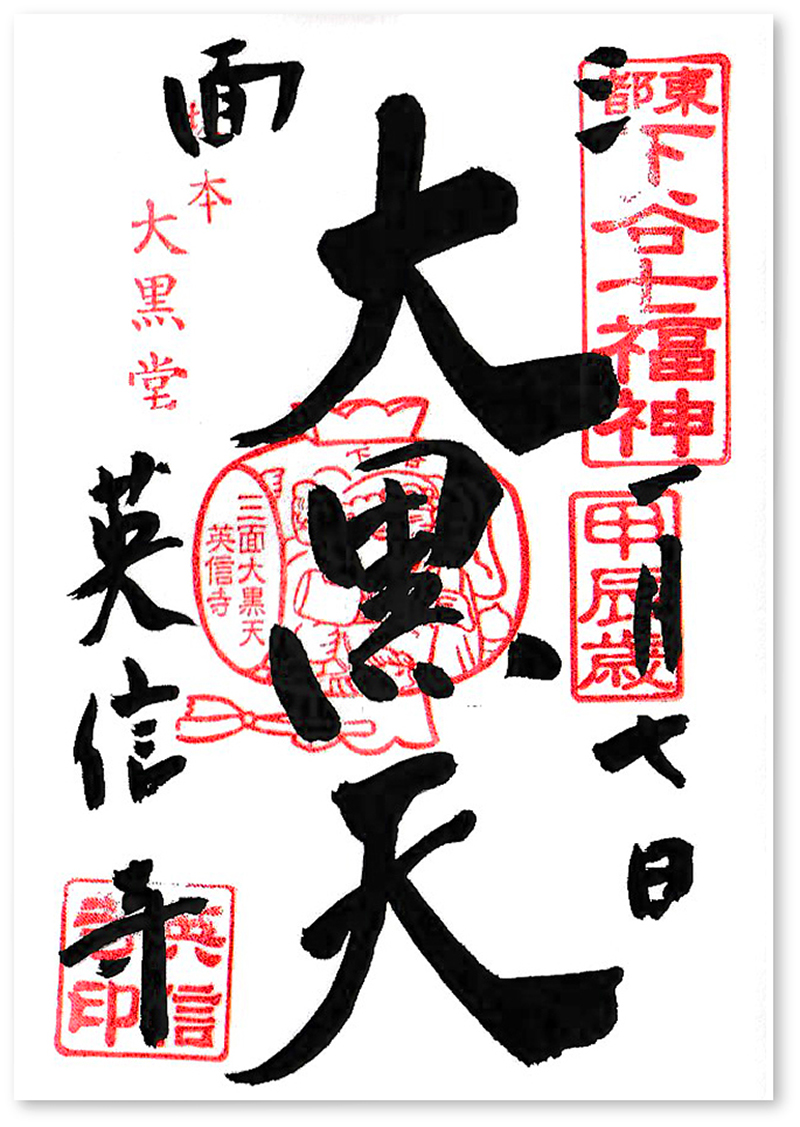 東都
下谷七福神
甲辰歳
三面
一月七日
大黒天
下谷
三面大黒天
英信寺
本
大黒堂
英信寺
英信寺印